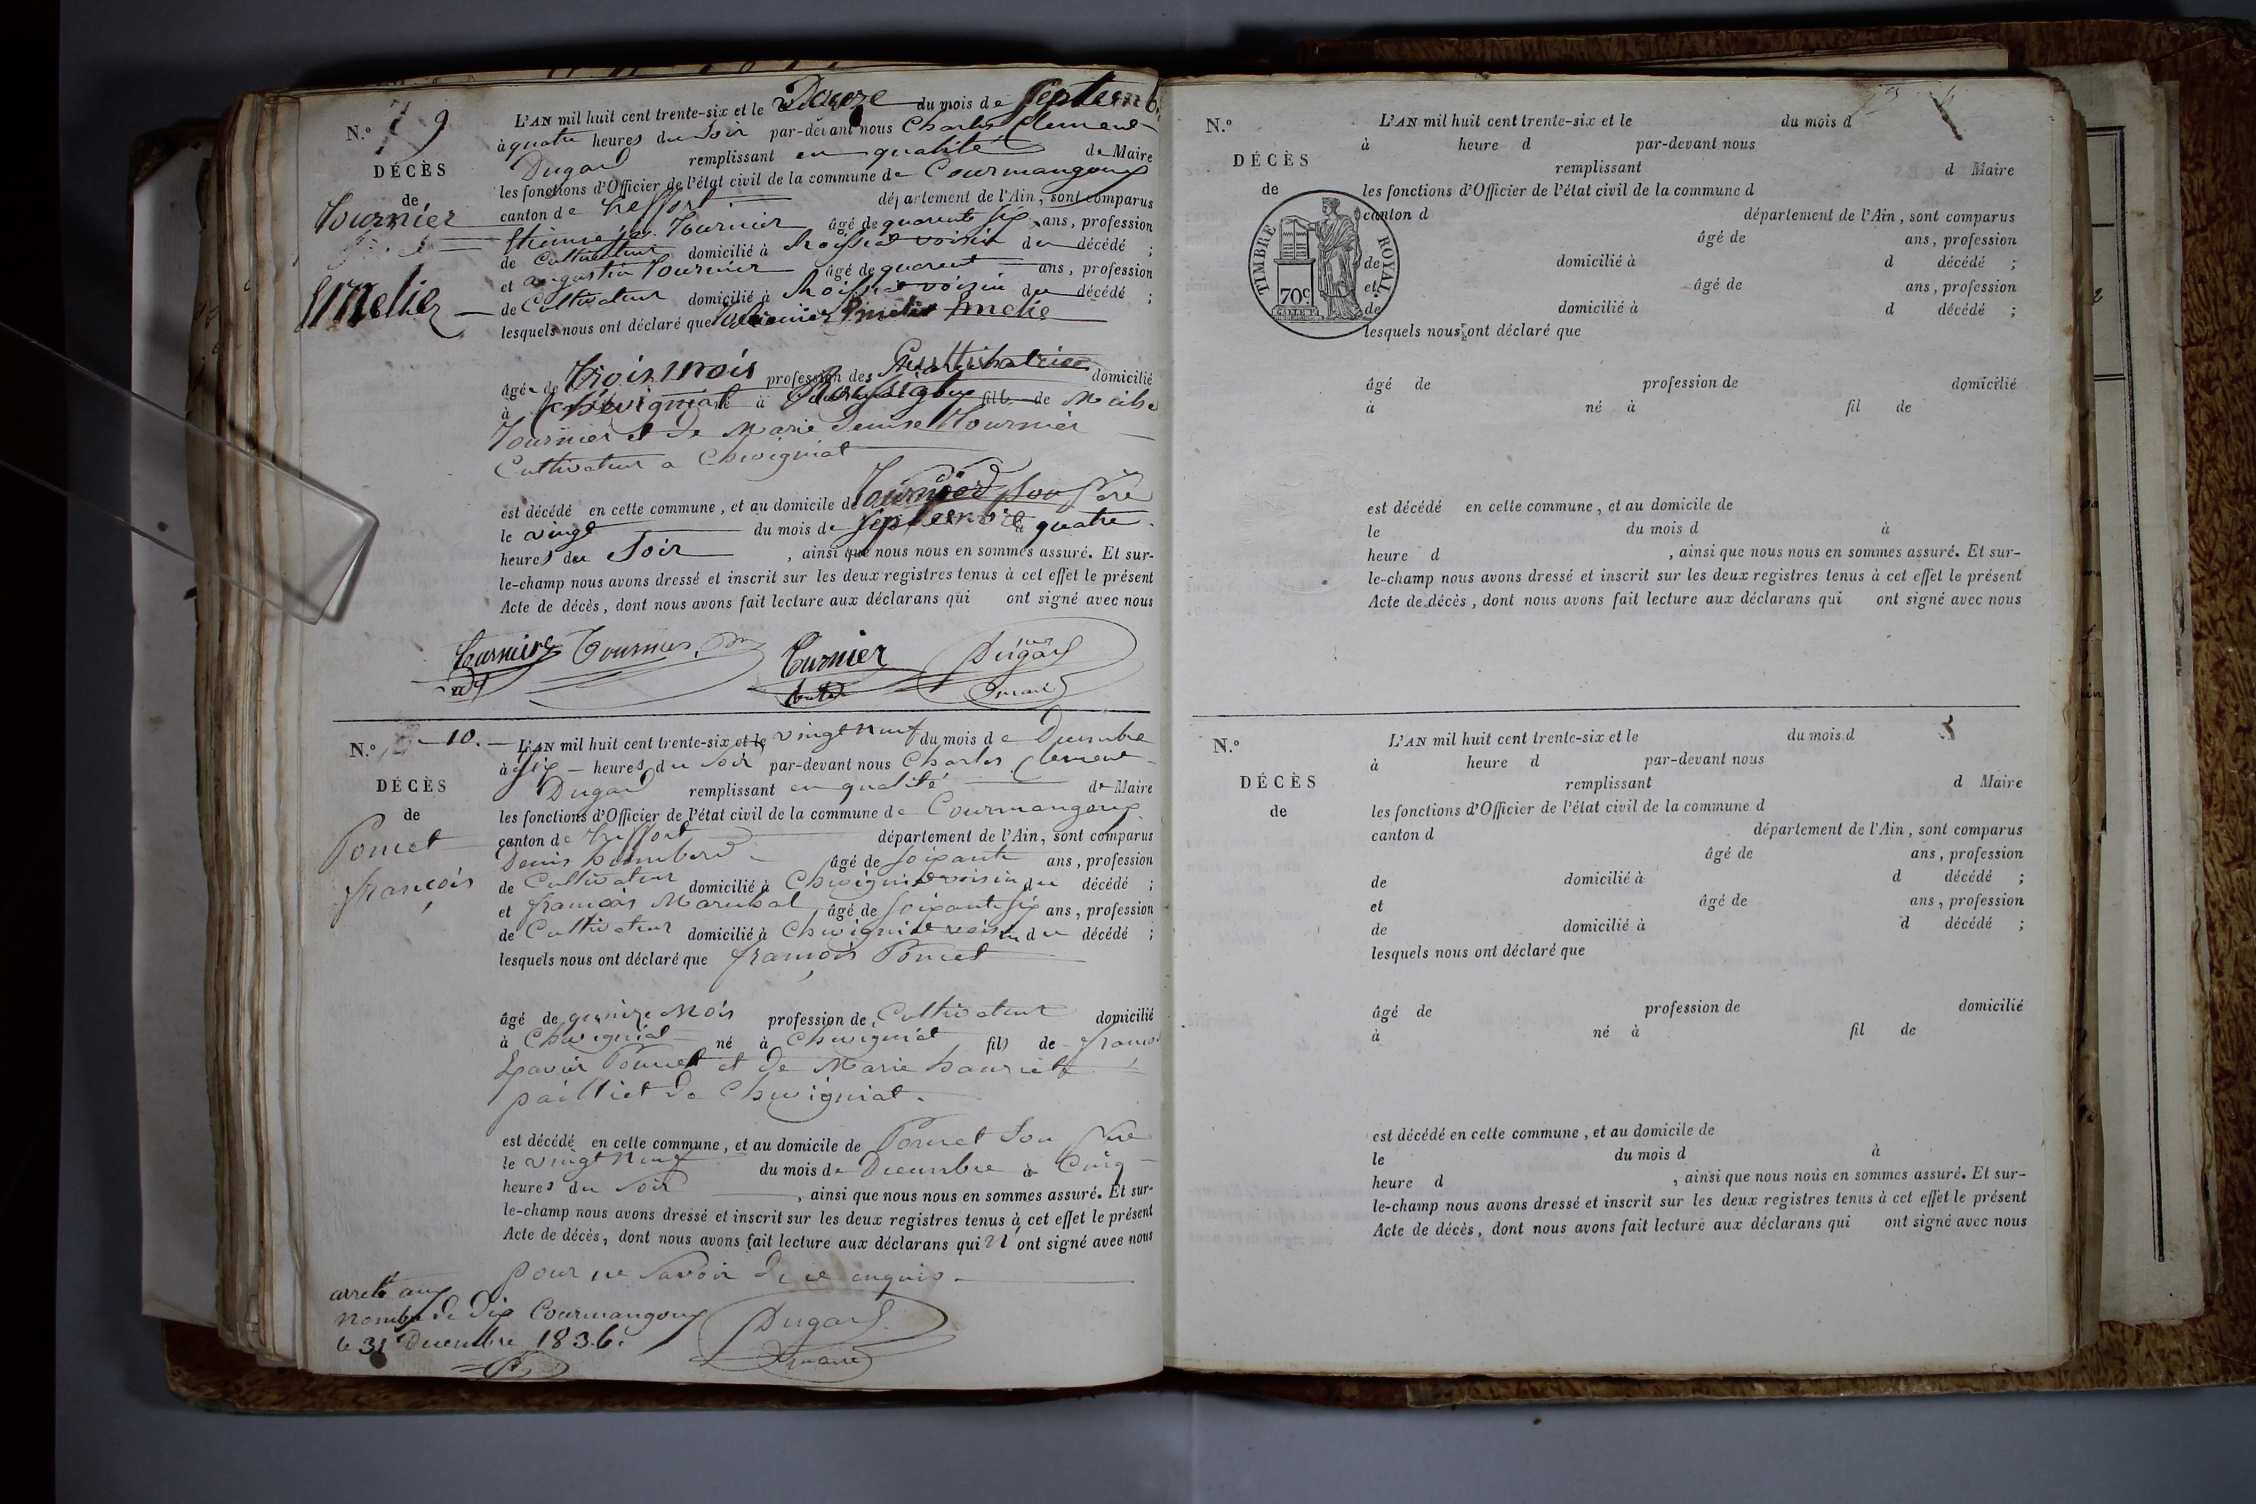 N.º 9
DÉCÈS
de
Tournier
Emelie
L'AN mil huit cent trente-six et le Douze du mois de septemb
à quatre heures du soir par-devant nous Charles Clement
Dugad remplissant en qualité de Maire
les fonctions d'Officier de l'état civil de la commune de Courmangoux
canton de treffort département de l'Ain, sont comparus
Tournier âgé de quarente six ans, profession
de Cultivateur domicilié à voisin du décédé ;
et augustin Tournier âgé de quarent ans, profession
de Cultivateur domicilié à voisin du décédé ;
lesquels nous ont déclaré que
âgé de trois mois profession de domicilié
à Chevigniat né à fill de
Tournier et de Marie denise Tournier
Cultivateur a Chevigniat
est décédé en cette commune, et au domicile de Tournier son Père
le vingt du mois de septembre à quatre
heures du Soir , ainsi que nous nous en sommes assuré. Et sur-
le-champ nous avons dressé et inscrit sur les deux registres tenus à cet effet le présent
Acte de décès, dont nous avons fait lecture aux déclarans qui ont signé avec nous
Tournier Tournier Dugad
maire
N.º 10.
DÉCÈS
de
Poncet
françois
L'AN mil huit cent trente-six et le vingt neuf du mois de Decembre
à six heures du soir par-devant nous Charles Clement
Dugad remplissant en qualité de Maire
les fonctions d'Officier de l'état civil de la commune de Courmangoux
canton de treffort département de l'Ain, sont comparus
Denis humberd âgé de soixante ans, profession
de Cultivateur domicilié à Chevigniat voisin du décédé ;
et françois Marechal âgé de soixante six ans, profession
de Cultivateur domicilié à Chevigniat voisin du décédé ;
lesquels nous ont déclaré que françois Poncet
âgé de quinze Mois profession de Cultivateur domicilié
à Chevigniat né à Chevigniat fils de franc
Xavier Poncet et de Marie
de Chevigniat.
est décédé en cette commune, et au domicile de Poncet Son Père
le vingt neuf du mois de Decembre à Cinq
heures du Soir , ainsi que nous nous en sommes assuré. Et sur-
le-champ nous avons dressé et inscrit sur les deux registres tenus à cet effet le présent
Acte de décès, dont nous avons fait lecture aux déclarans qui ont signé avec nous
pour ne Savoir de ce enquis.
arreté aux
nombre de dix Courmangoux
le 31 Decembre 1836.
Dugad
maire
N.º
DÉCÈS
de
TIMBRE ROYAL
70c
L'AN mil huit cent trente-six et le du mois d
à heure d par-devant nous
remplissant d Maire
les fonctions d'Officier de l'état civil de la commune d
canton d département de l'Ain, sont comparus
âgé de ans, profession
de domicilié à d décédé ;
et âgé de ans, profession
de domicilié à d décédé ;
lesquels nous ont déclaré que
âgé de profession de domicilié
à né à fil de
est décédé en cette commune, et au domicile de
le du mois d à
heure d , ainsi que nous nous en sommes assuré. Et sur-
le-champ nous avons dressé et inscrit sur les deux registres tenus à cet effet le présent
Acte de décès, dont nous avons fait lecture aux déclarans qui ont signé avec nous
N.º
DÉCÈS
de
L'AN mil huit cent trente-six et le du mois d
à heure d par-devant nous
remplissant d Maire
les fonctions d'Officier de l'état civil de la commune d
canton d département de l'Ain, sont comparus
âgé de ans, profession
de domicilié à d décédé ;
et âgé de ans, profession
de domicilié à d décédé ;
lesquels nous ont déclaré que
âgé de profession de domicilié
à né à fil de
est décédé en cette commune, et au domicile de
le du mois d à
heure d , ainsi que nous nous en sommes assuré. Et sur-
le-champ nous avons dressé et inscrit sur les deux registres tenus à cet effet le présent
Acte de décès, dont nous avons fait lecture aux déclarans qui ont signé avec nous